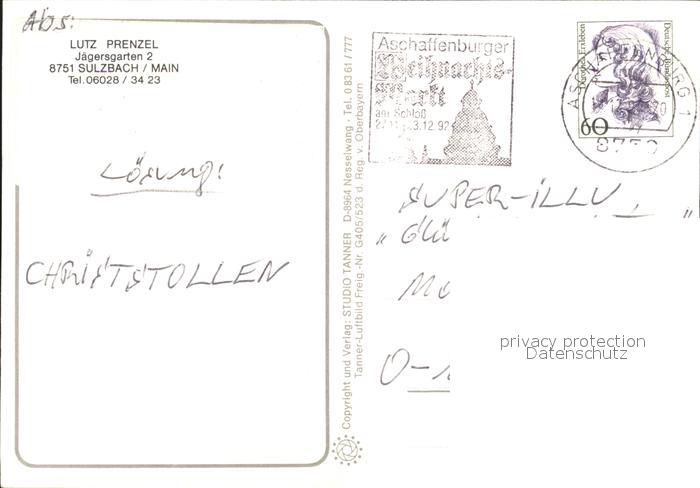 Abs:
LUTZ PRENZEL
Jägersgarten 2
8751 SULZBACH / MAIN
Tel. 06028 / 34 23
Lösung:
CHRISTSTOLLEN
Copyright und Verlag: STUDIO TANNER D-8964 Nesselwang · Tel. 0 83 61 / 777
Tanner-Luftbild Freig.-Nr. G405/523 d. Reg. v. Oberbayern
Aschaffenburger
Weihnachts-
Markt
am Schloß
3.12.92
Dorothea Erxleben
Deutsche Bundespost
60
ASCHAFFENBURG 1
8750
SUPER-ILLU
„
"
privacy protection
Datenschutz